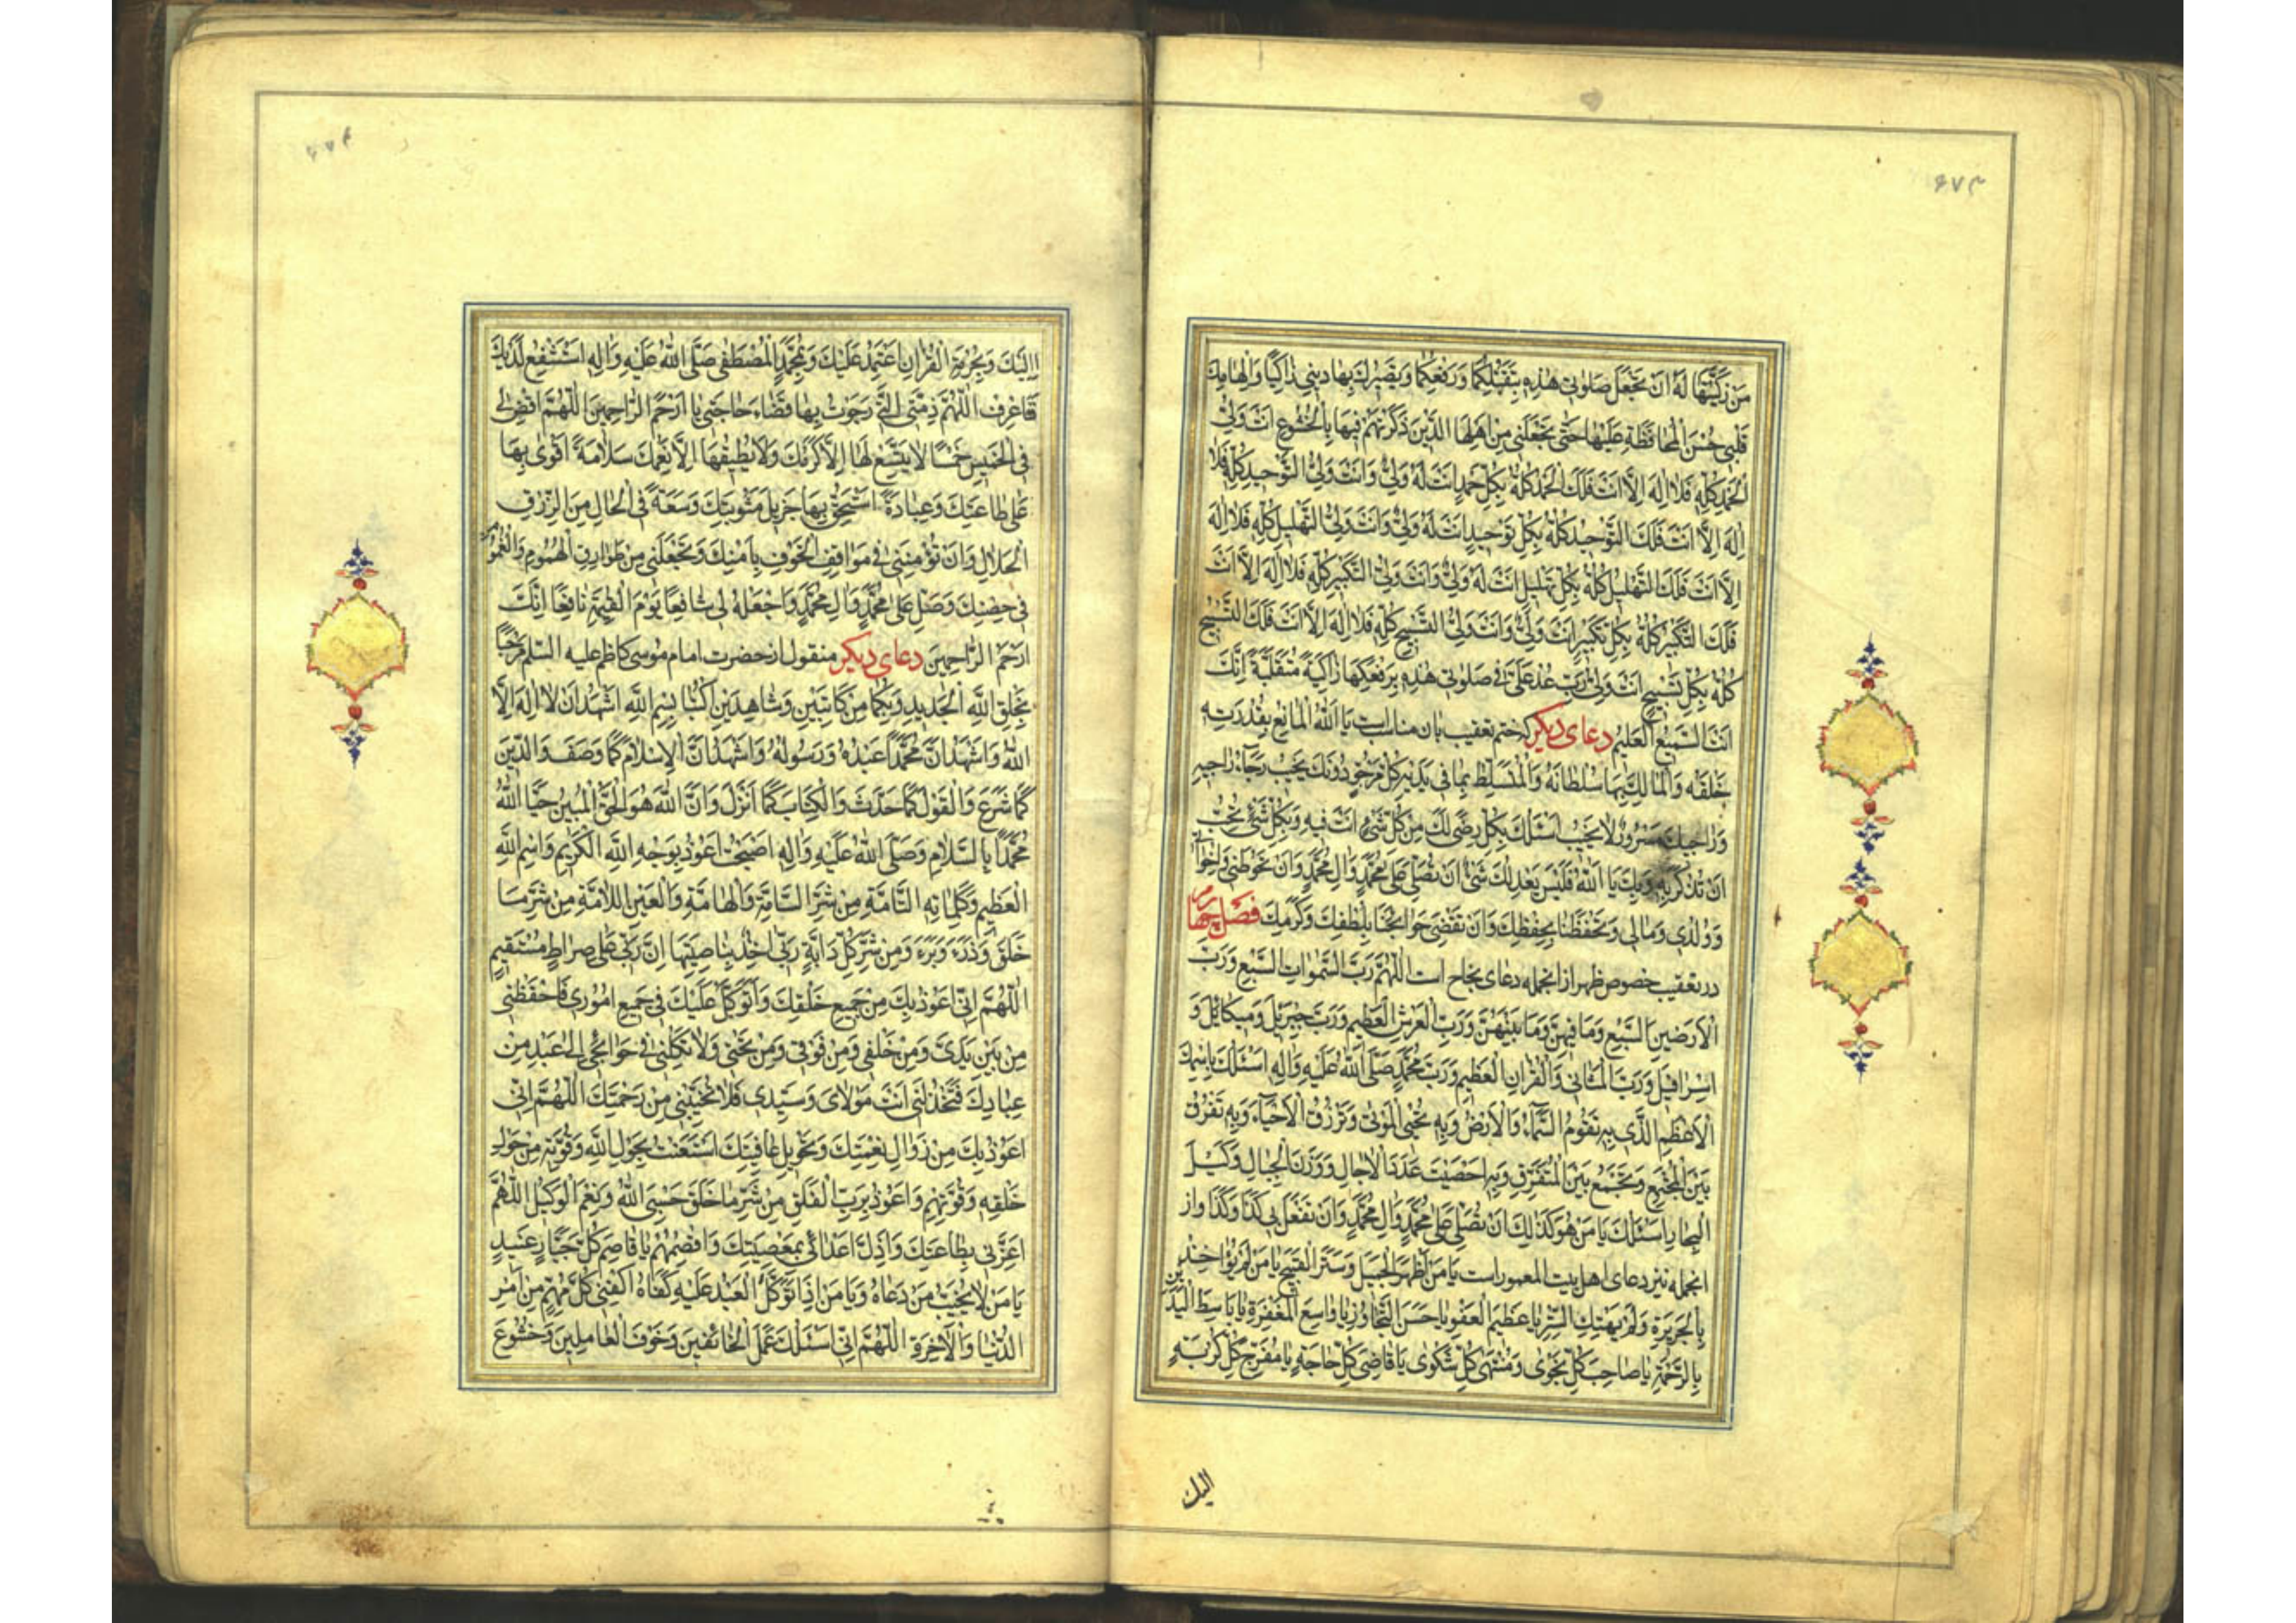 ۶۷۳
مَن زَكَّيتَها لَهُ اَن تَجْعَلَ صَلوتى هذِهِ بِتَقَبُّلِكَها وَرَفْعِكَها وَتَصْيِرُكَ بِها دينى زاكِيًا وَاِلْهامِكَ
قَلْبى حُسْنَ الْمُحافَظَةِ عَلَيْها حَتّى تَجْعَلَنى مِن اَهْلِهَا الَّذينَ ذَكَرْتَهُمْ فيها بِالْخُشُوعِ اَنْتَ وَلِىُّ
الْحَمْدِ كُلِّهِ فَلا اِلهَ اِلاّ اَنْتَ فَلَكَ الْحَمْدُ كُلُّهُ بِكُلِّ حَمْدٍ اَنْتَ لَهُ وَلِىٌّ وَاَنْتَ وَلِىُّ التَّوْحيدِ كُلِّهِ فَلا
اِلهَ اِلاّ اَنْتَ فَلَكَ التَّوْحيدُ كُلُّهُ بِكُلِّ تَوْحيدٍ اَنْتَ لَهُ وَلِىٌّ وَاَنْتَ وَلِىُّ التَّهْليلِ كُلِّهِ فَلا اِلهَ
اِلاّ اَنْتَ فَلَكَ التَّهْليلُ كُلُّهُ بِكُلِّ تَهْليلٍ اَنْتَ لَهُ وَلِىٌّ وَاَنْتَ وَلِىُّ التَّكْبيرِ كُلِّهِ فَلا اِلهَ اِلاّ اَنْتَ
فَلَكَ التَّكْبيرُ كُلُّهُ بِكُلِّ تَكْبيرٍ اَنْتَ وَلِىٌّ وَاَنْتَ وَلِىُّ التَّسْبيحِ كُلِّهِ فَلا اِلهَ اِلاّ اَنْتَ فَلَكَ التَّسْبيحُ
كُلُّهُ بِكُلِّ تَسْبيحٍ اَنْتَ وَلِىٌّ رَبِّ عُدْ عَلَىَّ فى صَلوتى هذِهِ بِرَفْعِكَها زاكِيَةً مُتَقَبَّلَةً اِنَّكَ
اَنْتَ السَّميعُ الْعَليمُ دعاى ديكر كه ختم تعقيب بان مناسب است يا اَللهُ الْمانِعُ بِقُدْرَتِهِ
خَلْقَهُ وَالْمالِكُ بِها سُلْطانَهُ وَالْمُتَسَلِّطُ بِما فى يَدَيْهِ كُلُّ مَرْجُوٍّ دُونَكَ يَخيبُ رَجآءُ راجيهِ
وَراجيكَ مَسْرُورٌ لا يَخيبُ اَسْئَلُكَ بِكُلِّ رِضىً لَكَ مِنْ كُلِّ شَىْءٍ اَنْتَ فيهِ وَبِكُلِّ شَىْءٍ تُحِبُّ
اَنْ تُذْكَرَ بِهِ وَبِكَ يا اَللهُ فَلَيْسَ يَعْدِلُكَ شَىْءٌ اَنْ تُصَلِّىَ عَلى مُحَمَّدٍ وَالِ مُحَمَّدٍ وَاَنْ تَحُوطَنى وَاِخْوانى
وَوُلْدى وَمالى وَتَحْفَظَنا بِحِفْظِكَ وَاَنْ تَقْضِىَ حَوائِجَنا بِلُطْفِكَ وَكَرَمِكَ فصل چهارم
در تعقيب خصوص ظهر از انجمله دعاى نجاح است اَللّهُمَّ رَبَّ السَّمواتِ السَّبْعِ وَرَبَّ
الْاَرَضينَ السَّبْعِ وَما فيهِنَّ وَما بَيْنَهُنَّ وَرَبَّ الْعَرْشِ الْعَظيمِ وَرَبَّ جَبْرَئيلَ وَميكائيلَ وَ
اِسْرافيلَ وَرَبَّ الْمَثانى وَالْقُرْانِ الْعَظيمِ وَرَبَّ مُحَمَّدٍ صَلَّى اللهُ عَلَيْهِ وَالِهِ اَسْئَلُكَ بِاسْمِكَ
الْاَعْظَمِ الَّذى بِهِ تَقُومُ السَّمآءُ وَالْاَرْضُ وَبِهِ تُحْيِى الْمَوْتى وَتَرْزُقُ الْاَحْيآءَ وَبِهِ تُفَرِّقُ
بَيْنَ الْمُجْتَمِعِ وَتَجْمَعُ بَيْنَ الْمُتَفَرِّقِ وَبِهِ اَحْصَيْتَ عَدَدَ الْاجالِ وَوَزْنَ الْجِبالِ وَكَيْلَ
الْبِحارِ اَسْئَلُكَ يا مَنْ هُوَ كَذلِكَ اَنْ تُصَلِّىَ عَلى مُحَمَّدٍ وَالِ مُحَمَّدٍ وَاَنْ تَفْعَلَ بى كَذا وَكَذا واز
انجمله نيز دعاى اهل بيت المعمور است يا مَنْ اَظْهَرَ الْجَميلَ وَسَتَرَ الْقَبيحَ يا مَنْ لَمْ يُؤاخِذْ
بِالْجَريرَةِ وَلَمْ يَهْتِكِ السِّتْرَ يا عَظيمَ الْعَفْوِ يا حَسَنَ التَّجاوُزِ يا واسِعَ الْمَغْفِرَةِ يا باسِطَ الْيَدَيْنِ
بِالرَّحْمَةِ يا صاحِبَ كُلِّ نَجْوى وَمُنْتَهى كُلِّ شَكْوى يا قاضِىَ كُلِّ حاجَةٍ يا مُفَرِّجَ كُلِّ كُرْبَةٍ
اليك
۶۷۴
اِلَيْكَ وَبِحُرْمَةِ الْقُرْانِ اَعْتَمِدُ عَلَيْكَ وَبِمُحَمَّدٍ الْمُصْطَفى صَلَّى اللهُ عَلَيْهِ وَالِهِ اَسْتَشْفِعُ لَدَيْكَ
فَاعْرِفِ اللّهُمَّ ذِمَّتِىَ الَّتى رَجَوْتُ بِها قَضآءَ حاجَتى يا اَرْحَمَ الرّاحِمينَ اَللّهُمَّ اقْضِ لى
فِى الْخَميسِ خَمْسًا لا يَتَّسِعُ لَها اِلاّ كَرَمُكَ وَلا يُطيقُها اِلاّ نِعَمُكَ سَلامَةً اَقْوى بِها
عَلى طاعَتِكَ وَعِبادَةً اَسْتَحِقُّ بِها جَزيلَ مَثُوبَتِكَ وَسَعَةً فِى الْحالِ مِنَ الرِّزْقِ
الْحَلالِ وَاَنْ تُؤْمِنَنى فى مَواقِفِ الْخَوْفِ بِاَمْنِكَ وَتَجْعَلَنى مِنْ طَوارِقِ الْهُمُومِ وَالْغُمُومِ
فى حِصْنِكَ وَصَلِّ عَلى مُحَمَّدٍ وَالِ مُحَمَّدٍ وَاجْعَلْهُ لى شافِعًا يَوْمَ الْقِيمَةِ نافِعًا اِنَّكَ
اَرْحَمُ الرّاحِمينَ دعاى ديكر منقول از حضرت امام موسى كاظم عليه السلم مَرْحَبًا
بِخَلْقِ اللهِ الْجَديدِ وَبِكُما مِنْ كاتِبَيْنِ وَشاهِدَيْنِ اُكْتُبا بِسْمِ اللهِ اَشْهَدُ اَنْ لا اِلهَ اِلاَّ
اللهُ وَاَشْهَدُ اَنَّ مُحَمَّدًا عَبْدُهُ وَرَسُولُهُ وَاَشْهَدُ اَنَّ الْاِسْلامَ كَما وَصَفَ وَالدّينَ
كَما شَرَعَ وَالْقَوْلَ كَما حَدَّثَ وَالْكِتابَ كَما اَنْزَلَ وَاَنَّ اللهَ هُوَ الْحَقُّ الْمُبينُ حَيَّا اللهُ
مُحَمَّدًا بِالسَّلامِ وَصَلَّى اللهُ عَلَيْهِ وَالِهِ اَصْبَحْتُ اَعُوذُ بِوَجْهِ اللهِ الْكَريمِ وَاسْمِ اللهِ
الْعَظيمِ وَكَلِماتِهِ التّامَّةِ مِنْ شَرِّ السّامَّةِ وَالْهامَّةِ وَالْعَيْنِ اللاّمَّةِ مِنْ شَرِّ ما
خَلَقَ وَذَرَءَ وَبَرَءَ وَمِنْ شَرِّ كُلِّ دابَّةٍ رَبّى اخِذٌ بِناصِيَتِها اِنَّ رَبّى عَلى صِراطٍ مُسْتَقيمٍ
اَللّهُمَّ اِنّى اَعُوذُ بِكَ مِنْ جَميعِ خَلْقِكَ وَاَتَوَكَّلُ عَلَيْكَ فى جَميعِ اُمُورى فَاحْفَظْنى
مِنْ بَيْنِ يَدَىَّ وَمِنْ خَلْفى وَمِنْ فَوْقى وَمِنْ تَحْتى وَلا تَكِلْنى فى حَوائِجى اِلى عَبْدٍ مِنْ
عِبادِكَ فَتَخْذُلَنى اَنْتَ مَوْلاىَ وَسَيِّدى فَلا تُخَيِّبْنى مِنْ رَحْمَتِكَ اَللّهُمَّ اِنّى
اَعُوذُ بِكَ مِنْ زَوالِ نِعْمَتِكَ وَتَحْويلِ عافِيَتِكَ اِسْتَعَنْتُ بِحَوْلِ اللهِ وَقُوَّتِهِ مِنْ حَوْلِ
خَلْقِهِ وَقُوَّتِهِمْ وَاَعُوذُ بِرَبِّ الْفَلَقِ مِنْ شَرِّ ما خَلَقَ حَسْبِىَ اللهُ وَنِعْمَ الْوَكيلُ اَللّهُمَّ
اَعِزَّنى بِطاعَتِكَ وَاَذِلَّ اَعْدائى بِمَعْصِيَتِكَ وَاقْصِمْهُمْ يا قاصِمَ كُلِّ جَبّارٍ عَنيدٍ
يا مَنْ لا يُخَيِّبُ مَنْ دَعاهُ وَيا مَنْ اِذا تَوَكَّلَ الْعَبْدُ عَلَيْهِ كَفاهُ اِكْفِنى كُلَّ مُهِمٍّ مِنْ اَمْرِ
الدُّنْيا وَالْاخِرَةِ اَللّهُمَّ اِنّى اَسْئَلُكَ عَمَلَ الْخائِفينَ وَخَوْفَ الْعامِلينَ وَخُشُوعَ